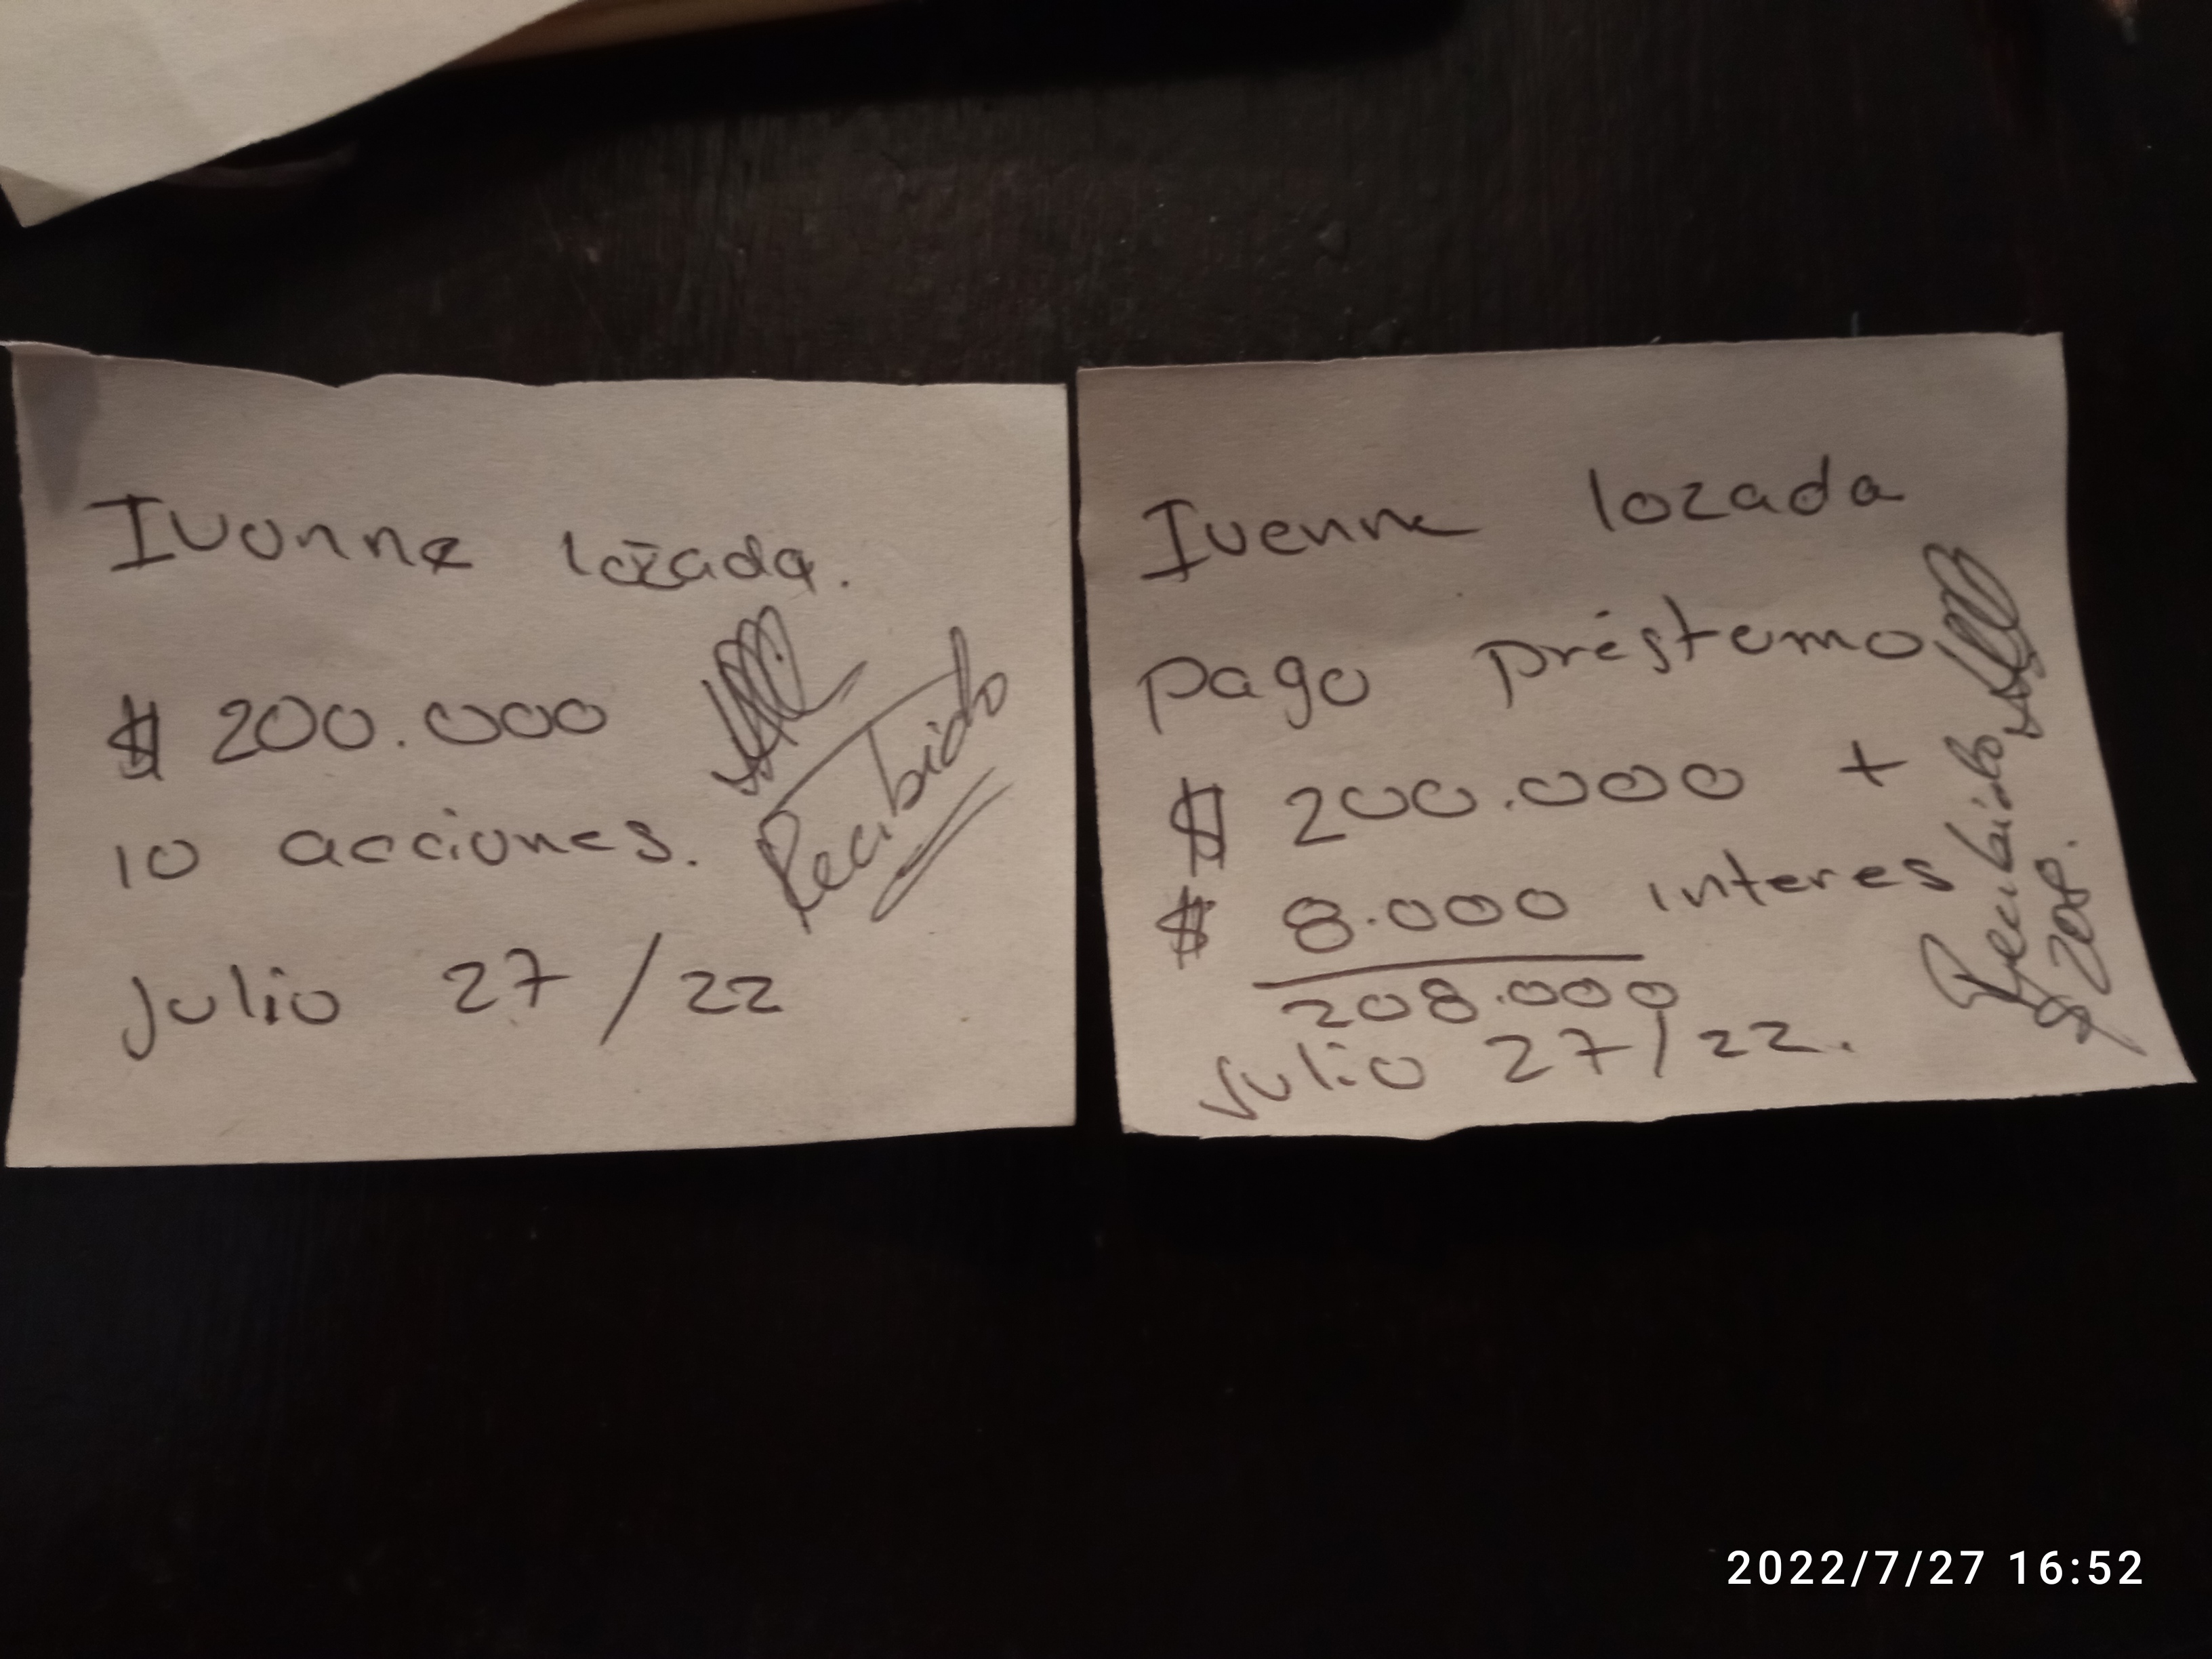 Ivonne lozada.
$ 200.000
10 acciones.
Julio 27/22
Recibido
Ivenne lozada
pago préstamo
$ 200.000 +
$ 8.000 interes
208.000
Julio 27/22.
Recibido
$ 208.
2022/7/27 16:52